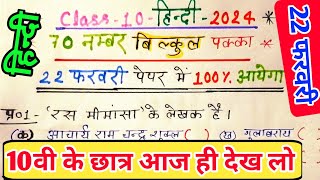 हिन्दी
Class-10-हिन्दी-2024
70 नम्बर बिल्कुल पक्का
22 फरवरी पेपर में 100% आयेगा
22 फरवरी
प्र01- 'रस मीमांसा' के लेखक हैं।
(क) आचार्य राम चन्द्र शुक्ल ( ) (ख) गुलाबराय ( )
10वी के छात्र आज ही देख लो